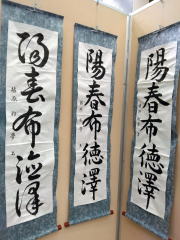 陽春布徳澤
陽春布徳澤
陽春布徳澤